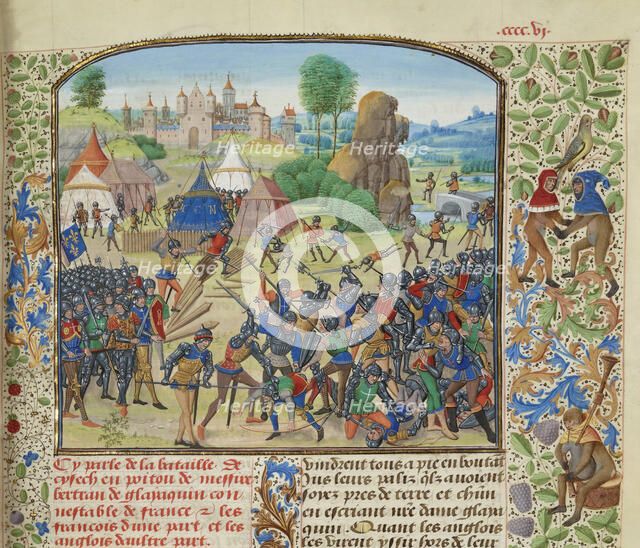 cccc. vj.
Heritage Heritage
Heritage Heritage
Heritage Heritage
Cy parle de la bataille de
cysech en poitou de messire
bertran de glayquin con
nestable de france & les
francois dune part et les
anglois daultre part.
vindrent tous a pie en boutai
hors leurs paliz
pres de terre et
en escriant n're dame glayai
quin. Quant les anglois
les virent yssir hors de leur